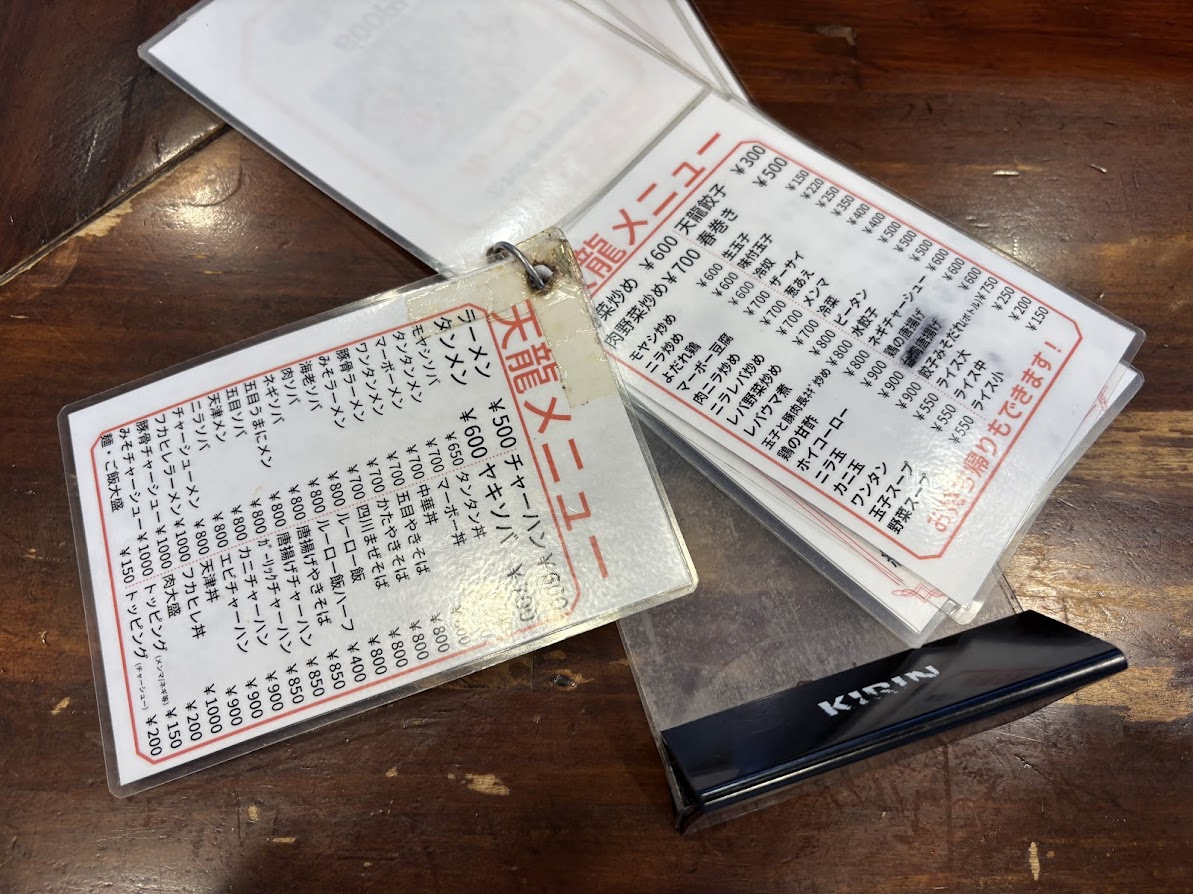 天龍メニュー
ラーメン ¥500
タンメン ¥600
モヤシソバ
タンタンメン
マーボーメン
ワンタンメン
豚骨ラーメン
みそラーメン
海老ソバ
肉ソバ
ネギソバ
五目うまにメン
五目ソバ
天津メン
ニラソバ
チャーシューメン
フカヒレラーメン
豚骨チャーシュー
みそチャーシュー
麺・ご飯大盛
¥650
¥700
¥700
¥700
¥700
¥700
¥800
¥800
¥800
¥800
¥800
¥800
¥800
¥800
¥1000
¥1000
¥1000
¥150
チャーハン
ヤキソバ
タンタン丼
マーボー丼 ¥800
中華丼 ¥800
五目やきそば ¥800
かたやきそば ¥800
四川まぜそば ¥800
ルーロー飯 ¥850
ルーロー飯ハーフ ¥400
唐揚げやきそば ¥850
唐揚げチャーハン ¥850
ガーリックチャーハン ¥900
カニチャーハン ¥900
エビチャーハン ¥900
天津丼
フカヒレ丼 ¥1000
肉大盛 ¥200
トッピング(メンマ/ネギ等) ¥150
トッピング(チャーシュー) ¥200
龍メニュー
菜炒め ¥600
肉野菜炒め ¥700
モヤシ炒め ¥600
ニラ炒め ¥600
よだれ鶏 ¥700
マーボー豆腐 ¥700
肉ニラ炒め ¥700
ニラレバ炒め ¥800
レバ野菜炒め ¥800
レバウマ煮 ¥800
玉子と豚肉長ネギ炒め ¥900
鶏の甘酢 ¥900
ホイコーロー ¥900
ニラ玉
カニ玉 ¥900
ワンタン ¥550
玉子スープ ¥550
野菜スープ ¥550
天龍餃子 ¥300
春巻き ¥500
生玉子 ¥150
味付玉子 ¥220
冷奴 ¥250
ザーサイ ¥350
葱あえ ¥400
メンマ ¥400
冷菜 ¥500
ピータン ¥500
水餃子 ¥500
ネギチャーシュー ¥600
鶏の唐揚げ ¥600
唐揚げ
餃子みぞれ(ボトル) ¥750
ライス大 ¥250
ライス中 ¥200
ライス小 ¥150
お持ち帰りもできます！
KIRIN